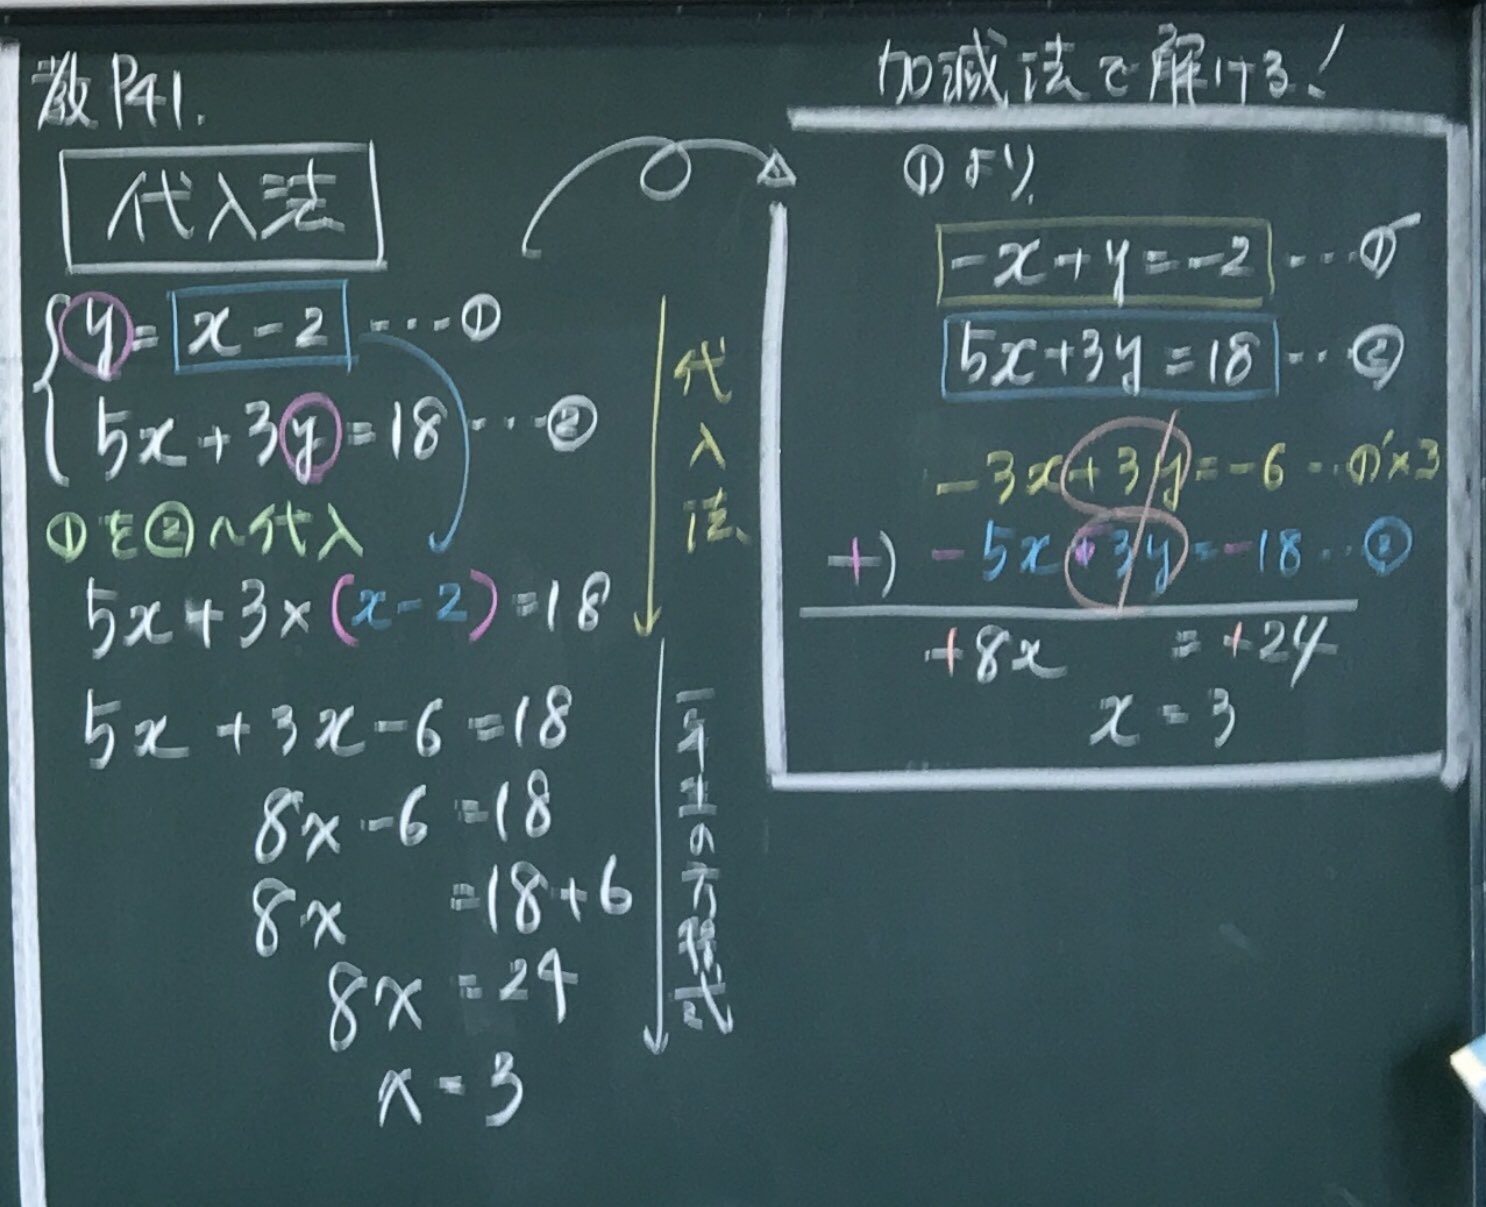 教P41.
代入法
y=x-2 …①
5x+3y=18 …②
①を②へ代入
5x+3×(x-2)=18
5x+3x-6=18
8x-6=18
8x=18+6
8x=24
x=3
代入法
一年生の方程式
加減法で解ける!
①より,
-x+y=-2 …①'
5x+3y=18 …②
-3x+3y=-6 …①'×3
+) -5x-3y=-18 …②
+8x=+24
x=3